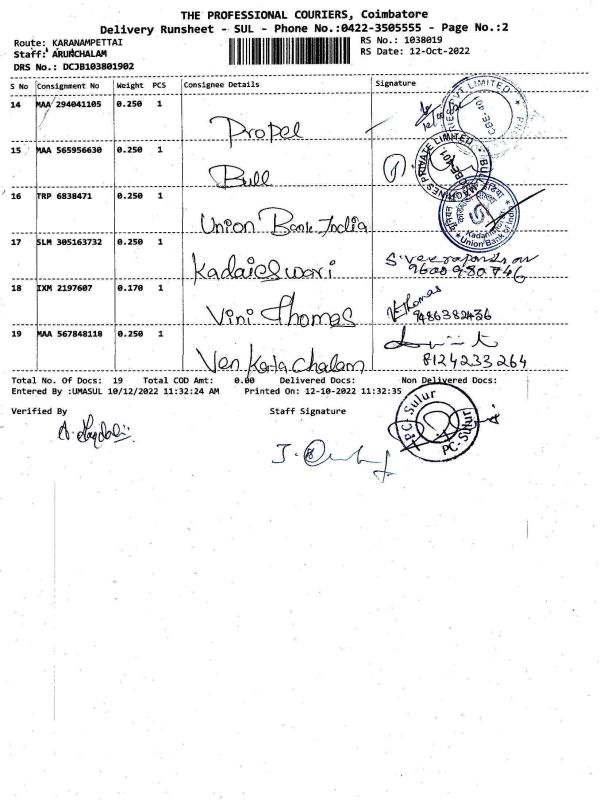 THE PROFESSIONAL COURIERS, Coimbatore
Delivery Runsheet - SUL - Phone No.:0422-3505555 - Page No.:2
Route: KARANAMPETTAI
RS No.: 1038019
Staff: ARUNCHALAM
RS Date: 12-Oct-2022
DRS No.: DCJB103801902
S No Consignment No Weight PCS Consignee Details Signature
14 MAA 294041105 0.250 1
Propel
15 MAA 565956630 0.250 1
Bull
16 TRP 6838471 0.250 1
Union Bank India
Union Bank of India
17 SLM 305163732 0.250 1
Kadaieswari
18 IXM 2197607 0.170 1
Vini Thomas
V. Thomas
9486382436
19 MAA 567848118 0.250 1
Venkatachalam
8124233264
Total No. Of Docs: 19 Total COD Amt: 0.00 Delivered Docs: Non Delivered Docs:
Entered By :UMASUL 10/12/2022 11:32:24 AM Printed On: 12-10-2022 11:32:35
Verified By Staff Signature
PC-Sulur
PC-Sulur